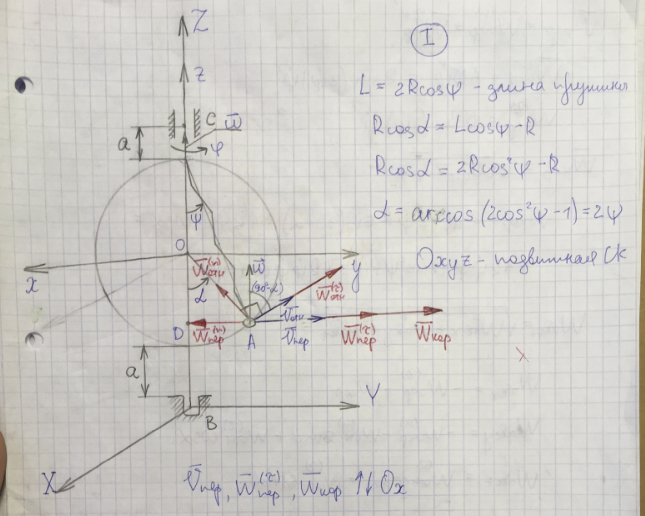 I
L = 2Rcosψ - длина пружины
Rcosα = Lcosψ - R
Rcosα = 2Rcos²ψ - R
α = arccos(2cos²ψ - 1) = 2ψ
Oxyz - подвижная СК
Z
z
C
ω̅
a
φ
ψ
O
x
y
W̅отн⁽ⁿ⁾
ω̅
(90°-α)
W̅отн⁽ᵗ⁾
α
V̅отн
D
W̅пер⁽ⁿ⁾
A
V̅пер
W̅пер⁽ᵗ⁾
W̅кор
a
B
Y
X
V̅пер, W̅пер⁽ᵗ⁾, W̅кор ↑↓ Ox